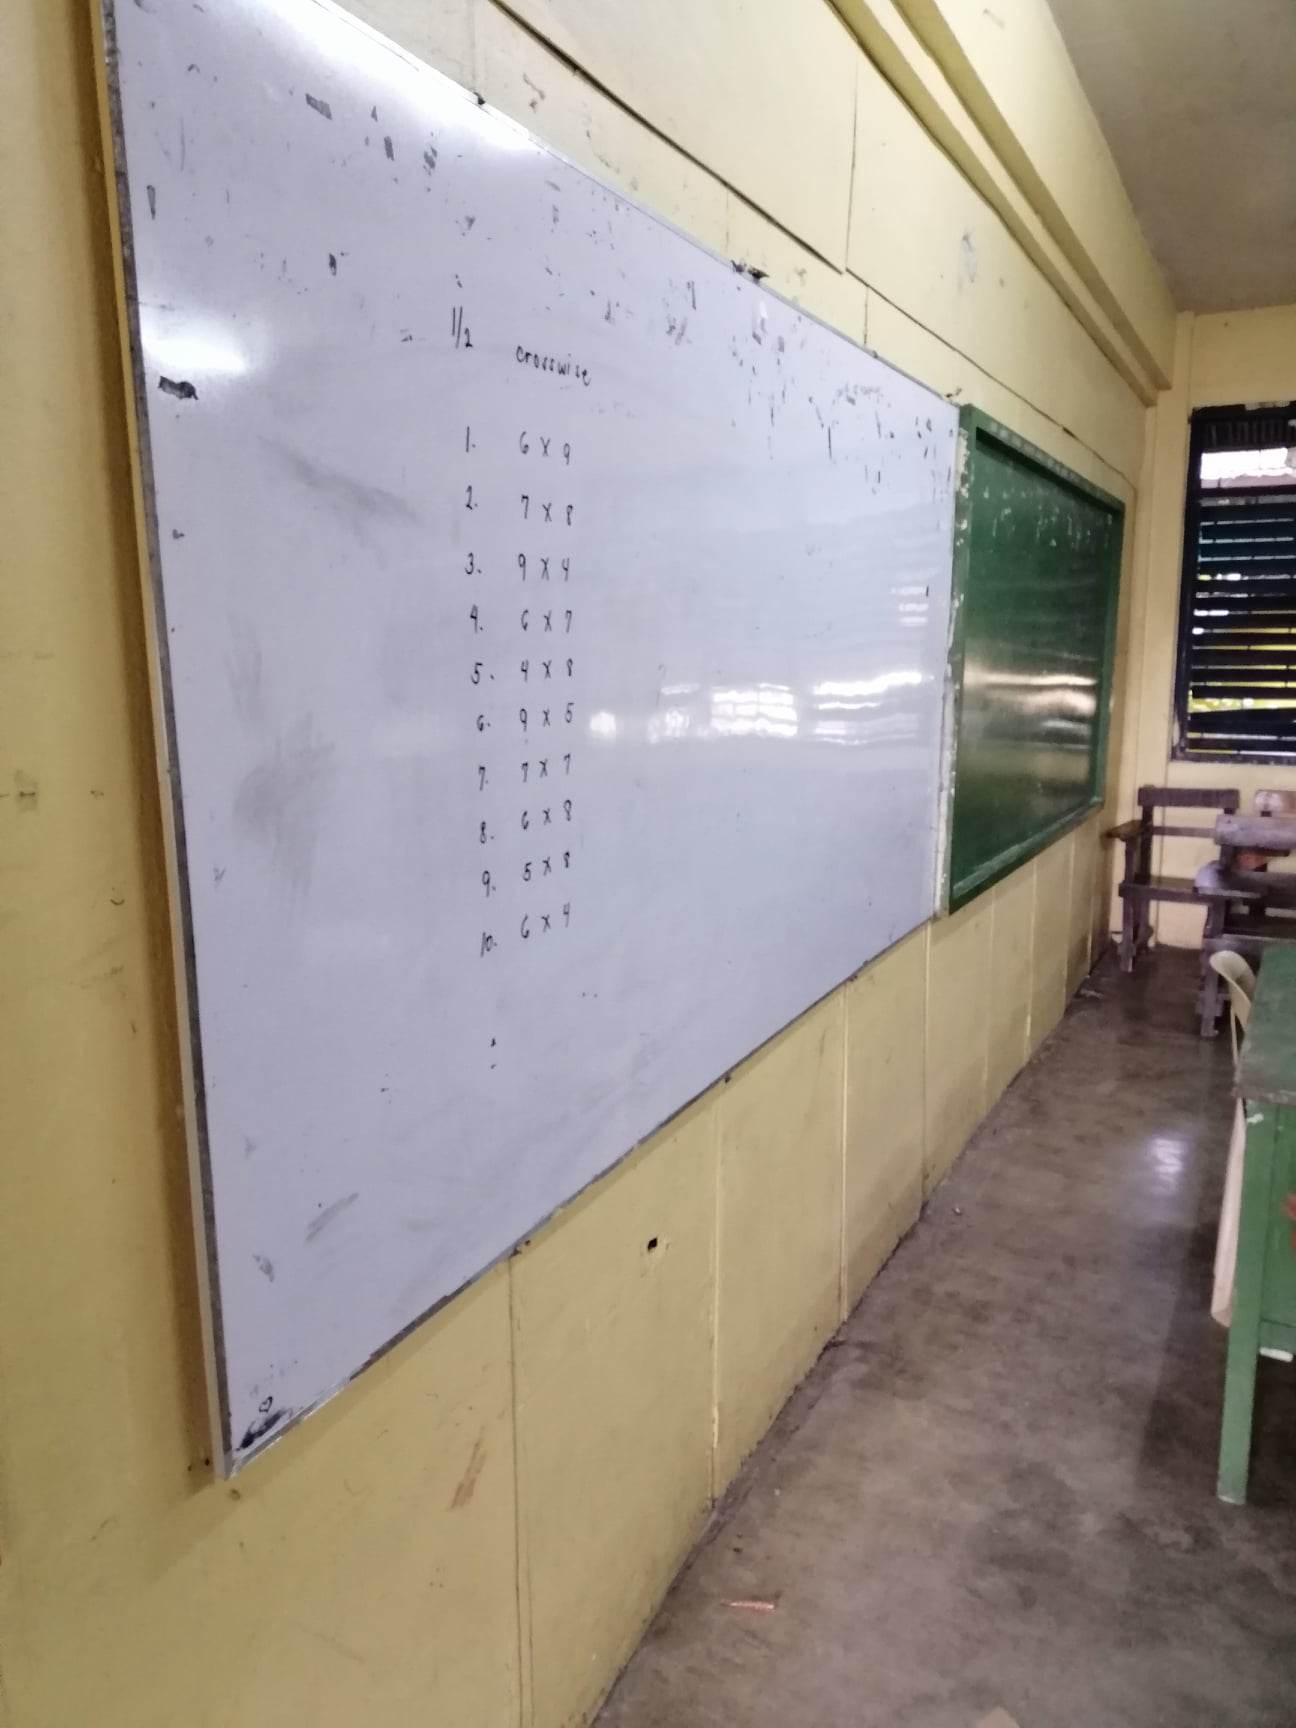 1/2 crosswise
1. 6 x 9
2. 7 x 8
3. 9 x 4
4. 6 x 7
5. 4 x 8
6. 9 x 5
7. 7 x 7
8. 6 x 8
9. 5 x 8
10. 6 x 4